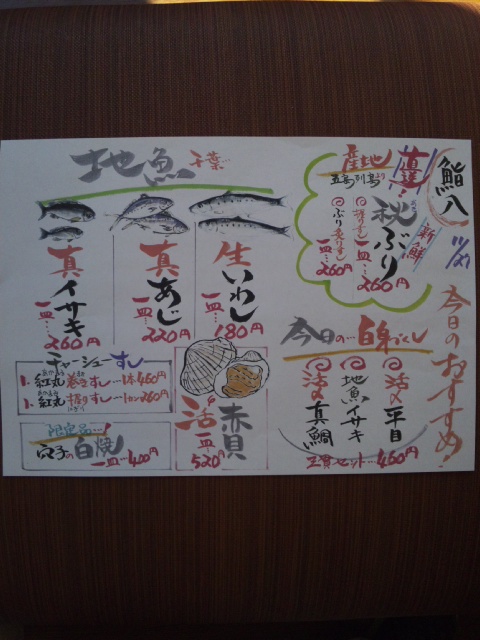 鮨八
11/21
今日のおすすめ!
産地直送!
五島列島より
新鮮
秋ぶり
一皿…260円
ぶり
一皿…260円
今日の…白身づくし
活〆平目
地魚イサキ
活〆真鯛
三貫セット…460円
地魚 千葉
生いわし
一皿…180円
真あじ
一皿…220円
真イサキ
一皿…260円
チャーシューすし
1.紅丸巻きすし…1本460円
1.紅丸握りすし…1カン260円
限定品…!
穴子の白焼
一皿…400円
活赤貝
一皿520円